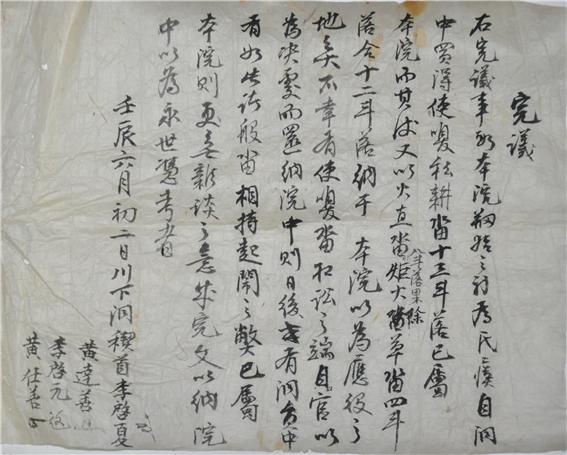 完議
右完議事段本院剙始之初為民瘼自洞
中買得使喚秐耕畓十三斗落已屬
本院而其後又以火直畓炬火畓草畓四斗
八斗落果除
落合十二斗落納于 本院以為應役之
地矣不幸有使喚畓相訟之端自官以
為決處而還納院中則日後或有洞員中
有如此諸般畓相持起鬧之弊已屬
本院則更無雜談之意成完文以納院
中以為永世憑考者
壬辰六月初二日川下洞稧首李啓夏
黃達善
李啓元
黃仕善